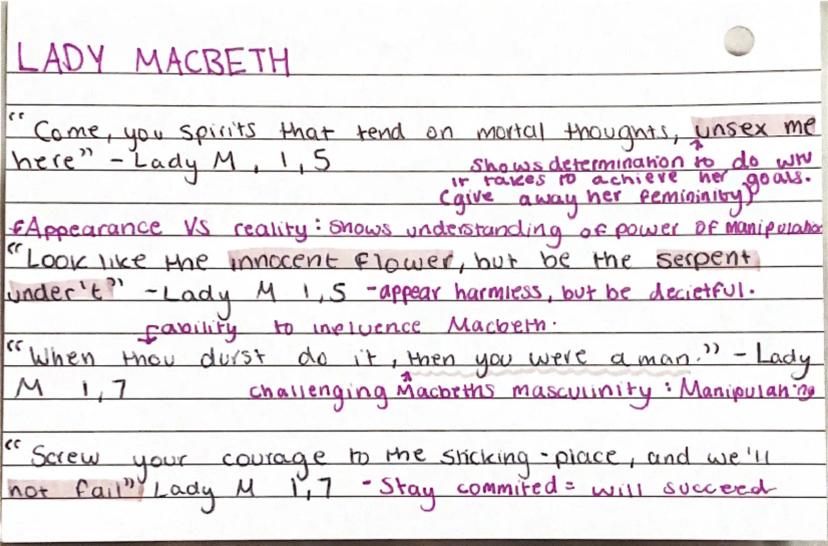 LADY MACBETH
"Come, you spirits that tend on mortal thoughts, unsex me
here" - Lady M, 1,5
shows determination to do
it takes to achieve her goals.
(give away her femininity)
Appearance VS reality: shows understanding of power of manipulation
"Look like the innocent flower, but be the serpent
under't" - Lady M 1,5 - appear harmless, but be decietful.
ability to influence Macbeth.
"When thou durst do it, then you were a man." - Lady
M 1,7 challenging Macbeths masculinity: Manipulating
"Screw your courage to the sticking-place, and we'll
not fail" Lady M 1,7 - Stay commited = will succeed